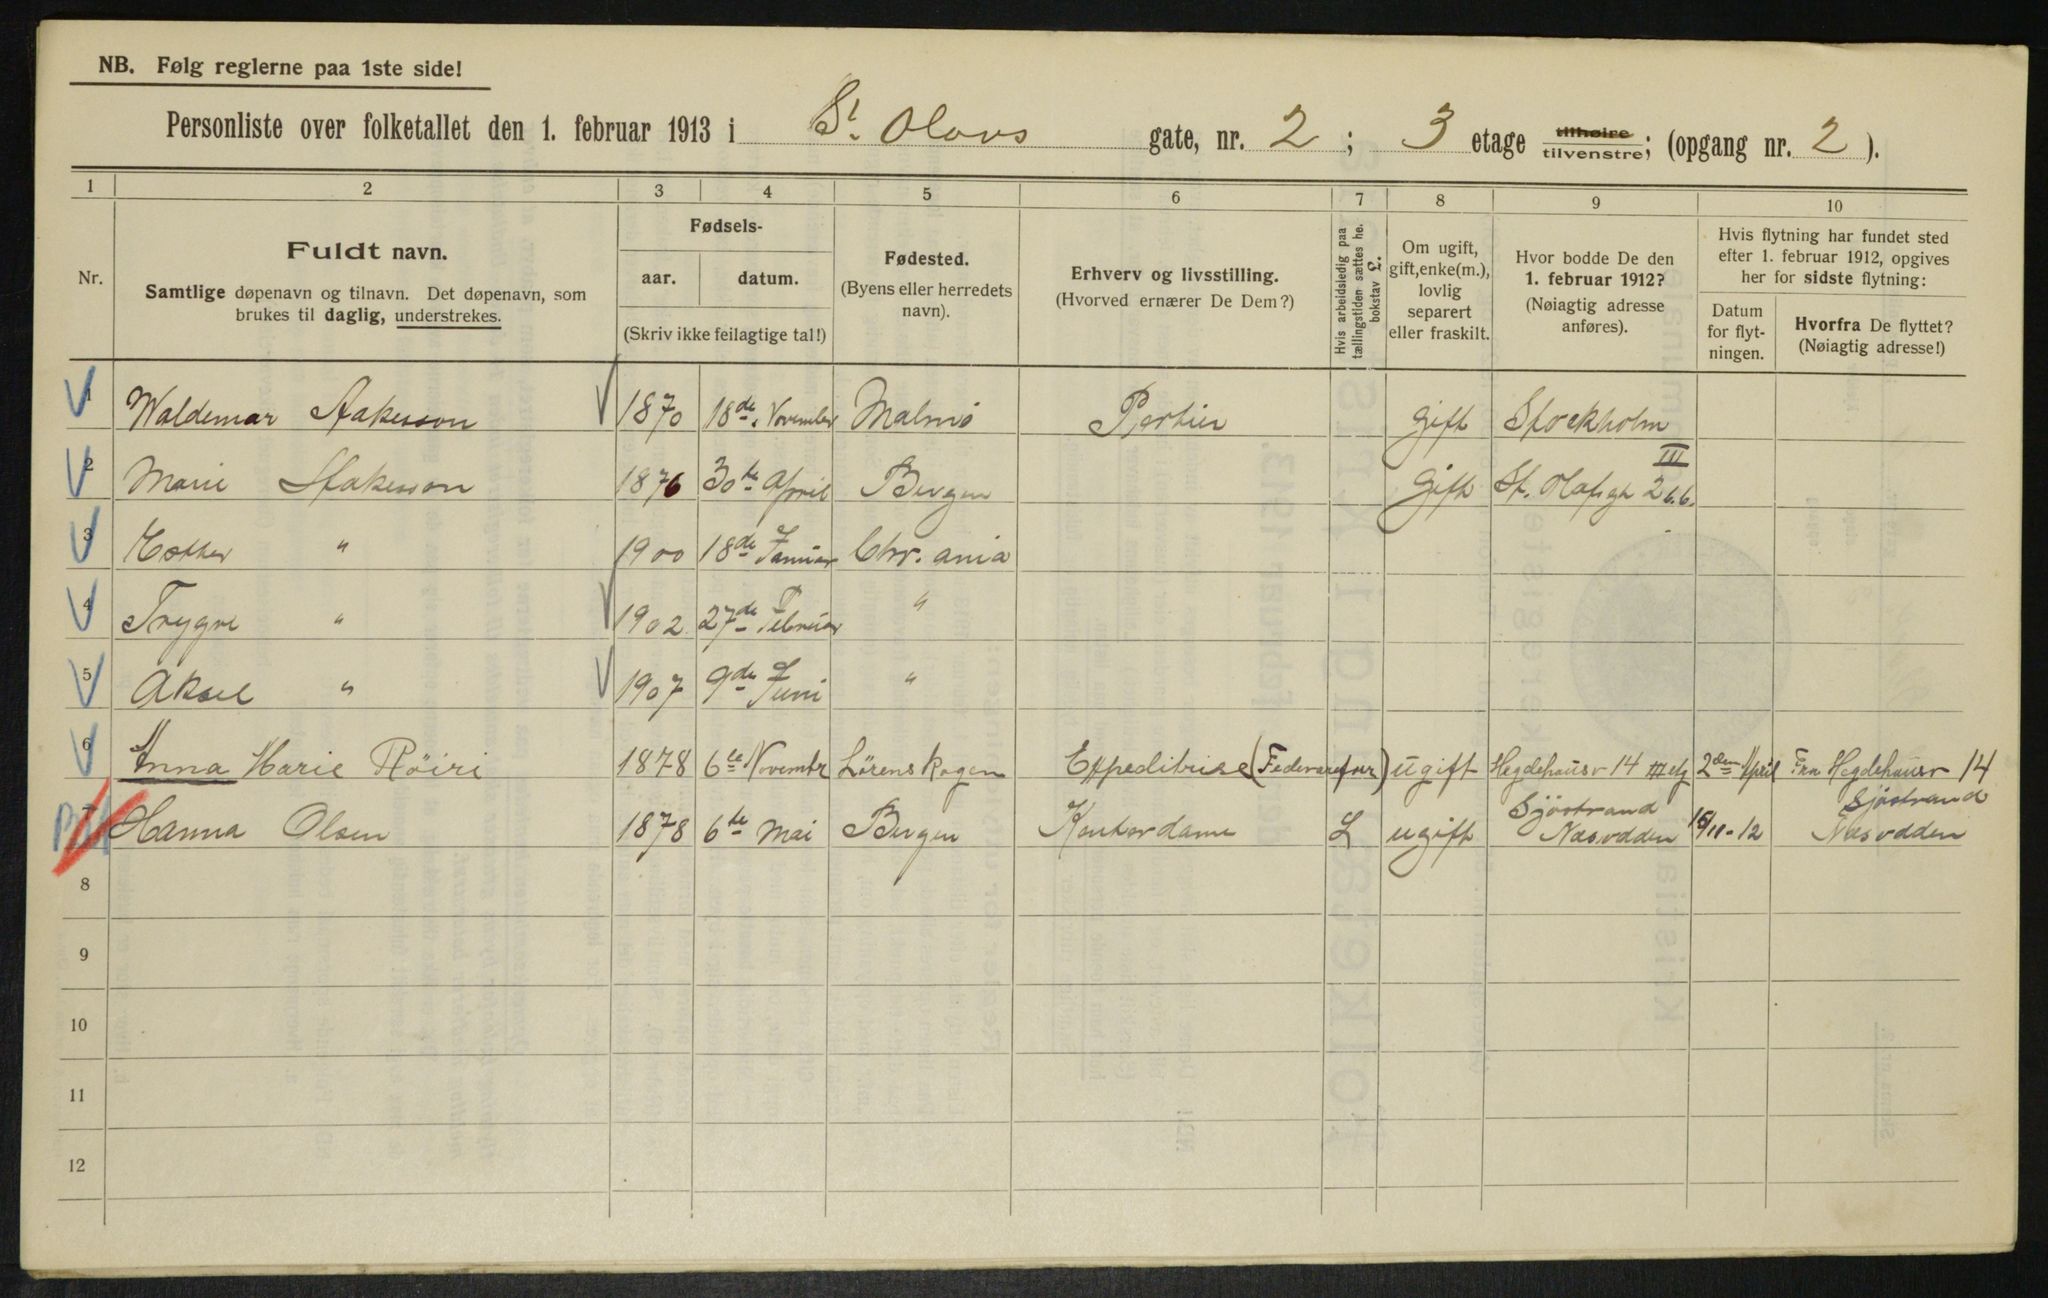 NB. Følg reglerne paa 1ste side!
Personliste over folketallet den 1. februar 1913 i St. Olavs gate, nr. 2; 3 etage tilhøire tilvenstre; (opgang nr. 2).
1 2 3 4 5 6 7 8 9 10
Nr.
Fuldt navn.
Samtlige døpenavn og tilnavn. Det døpenavn, som
brukes til daglig, understrekes.
Fødsels-
aar. datum.
(Skriv ikke feilagtige tal!)
Fødested.
(Byens eller herredets
navn).
Erhverv og livsstilling.
(Hvorved ernærer De Dem?)
Hvis arbeidsledig paa
tællingstiden sættes he.
bokstav L.
Om ugift,
gift, enke(m.),
lovlig
separert
eller fraskilt.
Hvor bodde De den
1. februar 1912?
(Nøiagtig adresse
anføres).
Hvis flytning har fundet sted
efter 1. februar 1912, opgives
her for sidste flytning:
Datum
for flyt-
ningen.
Hvorfra De flyttet?
(Nøiagtig adresse!)
1 Waldemar Aakesson 1870 18de November Malmö Portier gift Stockholm
2 Marie Aakesson 1876 30te April Bergen gift St. Olafsgt 2 III
3 Esther " 1900 18de Januar Chr.ania
4 Trygve " 1902 27de Februar "
5 Aksel " 1907 9de Juni "
6 Anna Marie Röiri 1878 6te Novembr Lörenskogen Expeditrise ugift Hegdehausv 14 III etg 2den April Fra Hegdehausv 14
7 Hanna Olsen 1878 6te Mai Bergen Kontordame L ugift Sjöstrand Næsodden 15/11-12 Sjöstrand Næsodden
8
9
10
11
12